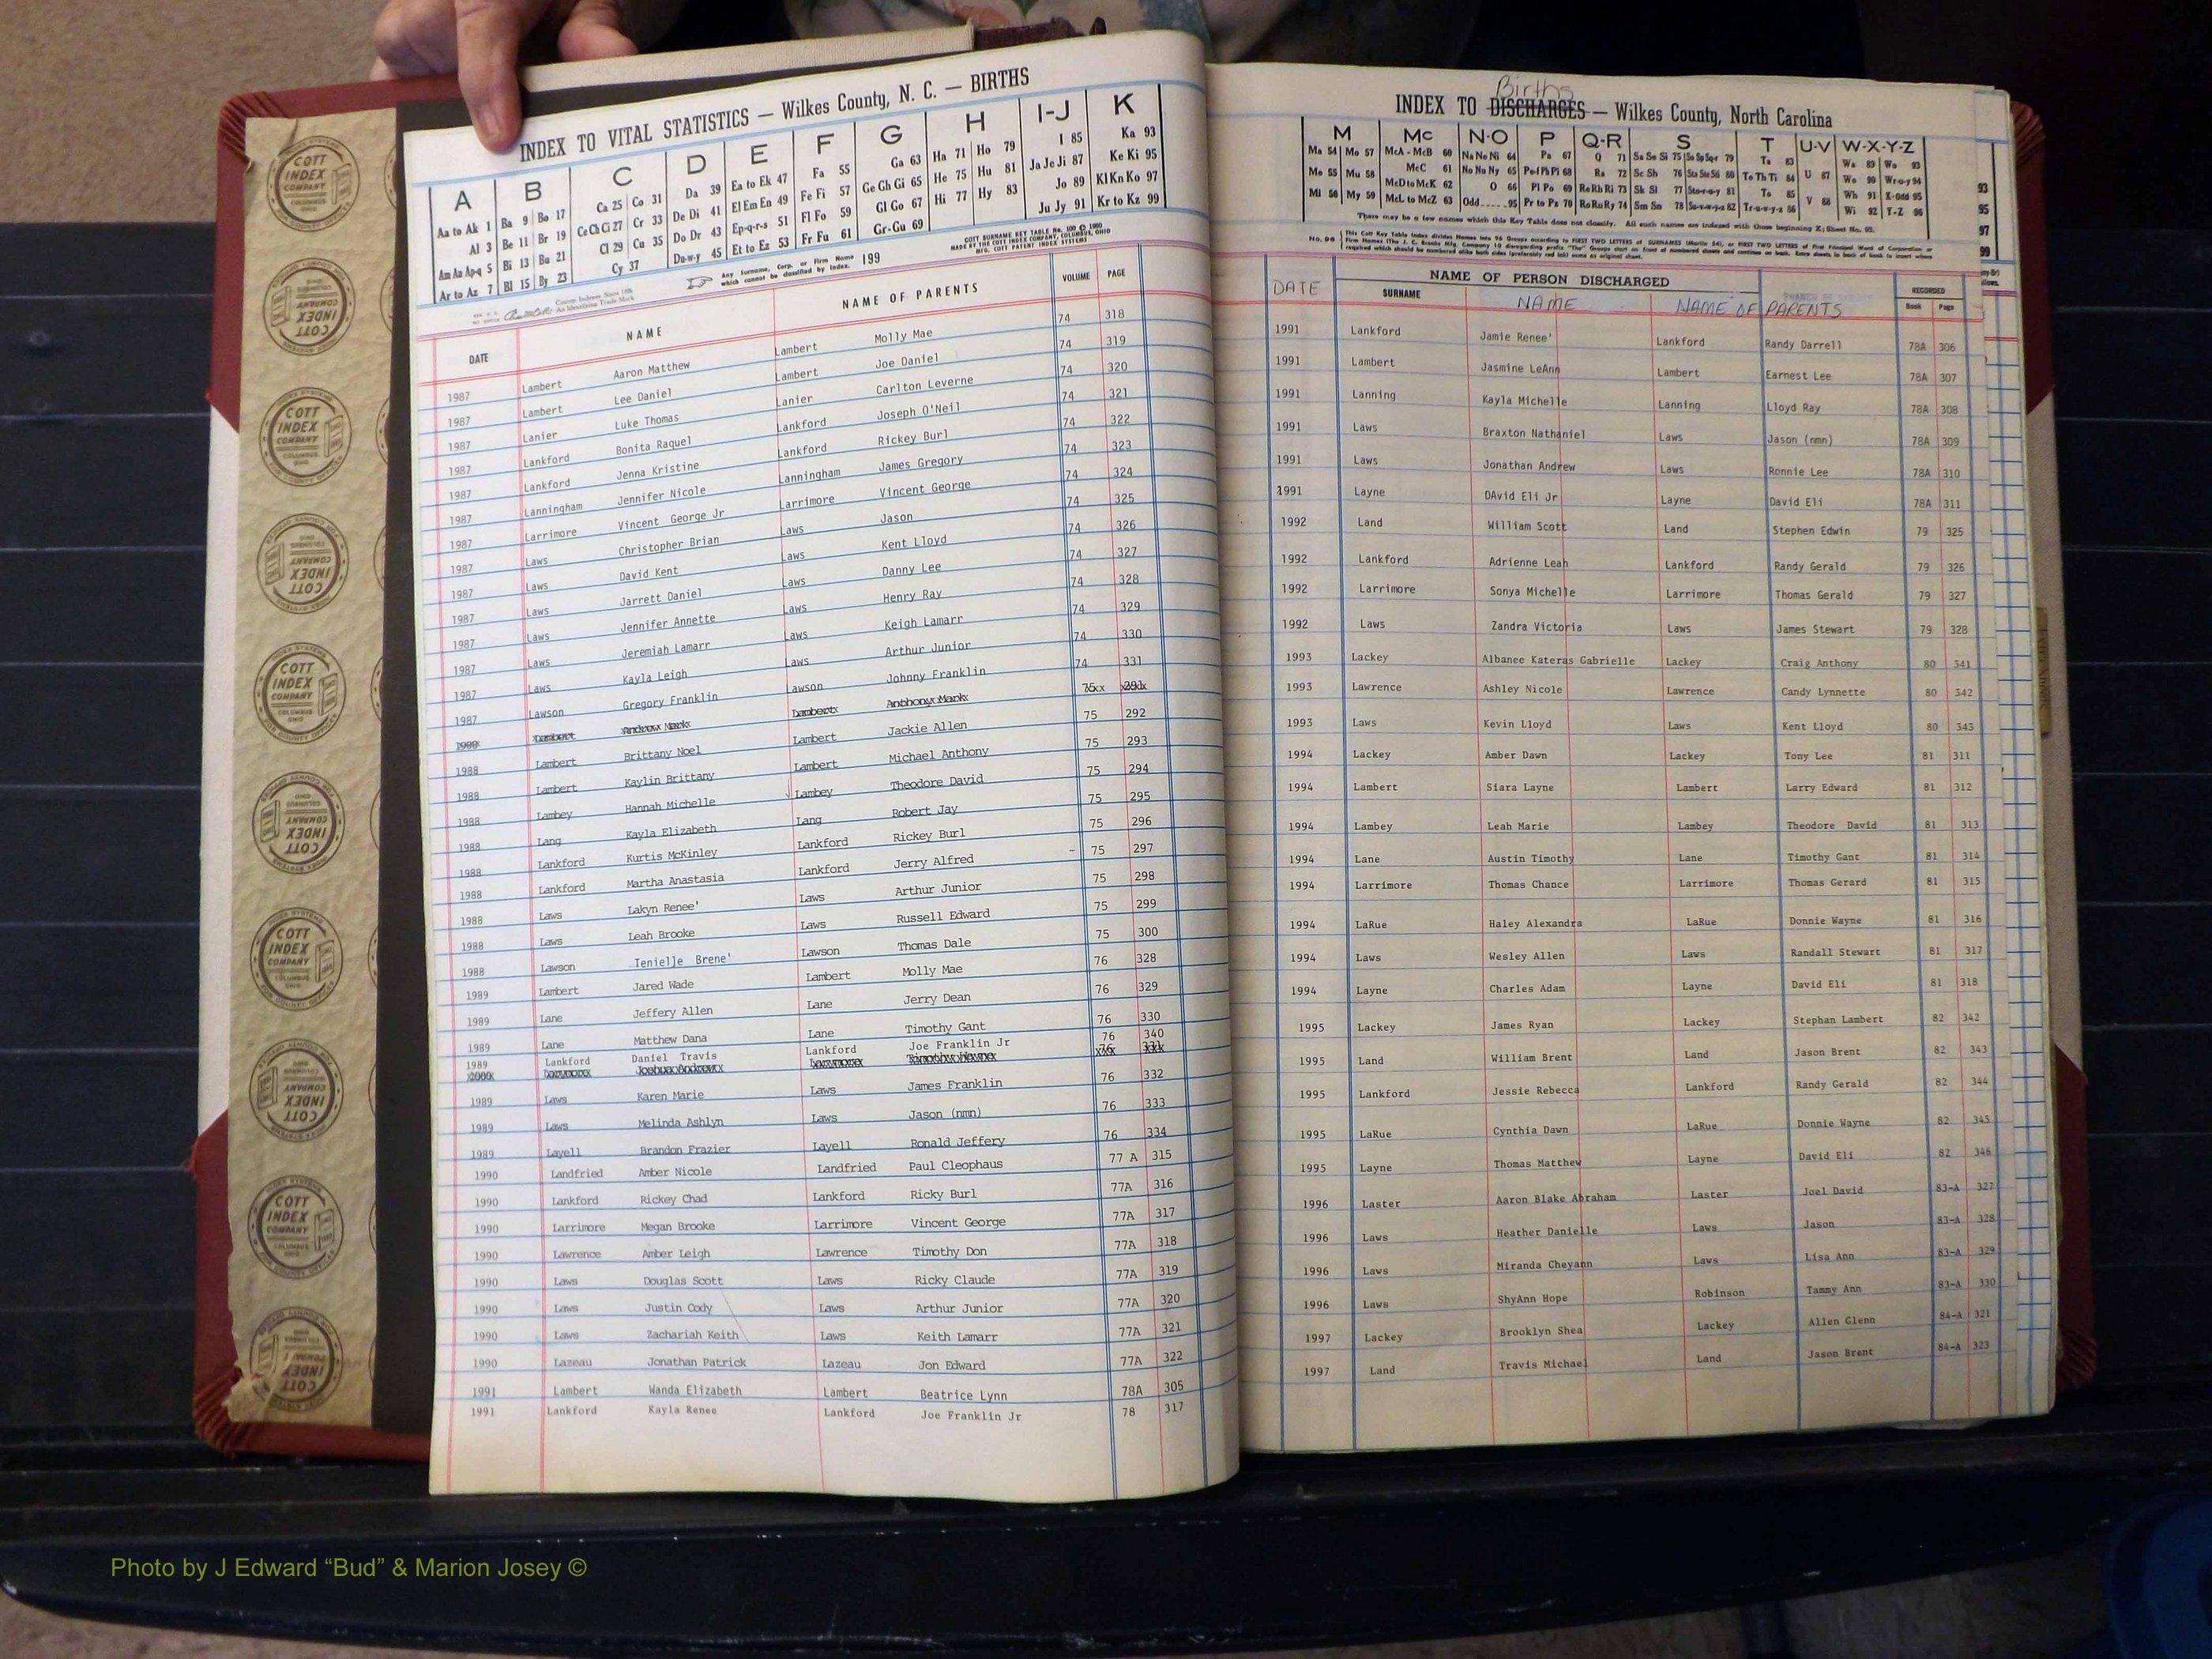 INDEX TO VITAL STATISTICS — Wilkes County, N. C. — BIRTHS
A B C D E F G H I-J K
Aa to Ak 1 Ba 9 Bo 17 Ca 25 Co 31 Da 39 Ea to Ek 47 Fa 55 Ga 63 Ha 71 Ho 79 I 85 Ka 93
Al 3 Be 11 Br 19 Ce Ch Ci 27 Cr 33 De Di 41 El Em En 49 Fe Fi 57 Ge Gh Gi 65 He 75 Hu 81 Ja Je Ji 87 Ke Ki 95
Am An Ap-q 5 Bi 13 Bu 21 Cl 29 Cu 35 Do Dr 43 Ep-q-r-s 51 Fl Fo 59 Gl Go 67 Hi 77 Hy 83 Jo 89 Kl Kn Ko 97
Ar to Az 7 Bl 15 By 23 Cy 37 Du-w-y 45 Et to Ez 53 Fr Fu 61 Gr-Gu 69 Ju Jy 91 Kr to Kz 99
Any Surname, Corp. or Firm Name which cannot be classified by Index. 199
COTT SURNAME KEY TABLE No. 100 © 1980
MADE BY THE COTT INDEX COMPANY, COLUMBUS, OHIO
MFG. COTT PATENT INDEX SYSTEMS
DATE NAME NAME OF PARENTS VOLUME PAGE
1987 Lambert Aaron Matthew Lambert Molly Mae 74 318
1987 Lambert Lee Daniel Lambert Joe Daniel 74 319
1987 Lanier Luke Thomas Lanier Carlton Leverne 74 320
1987 Lankford Bonita Raquel Lankford Joseph O'Neil 74 321
1987 Lankford Jenna Kristine Lankford Rickey Burl 74 322
1987 Lanningham Jennifer Nicole Lanningham James Gregory 74 323
1987 Larrimore Vincent George Jr Larrimore Vincent George 74 324
1987 Laws Christopher Brian Laws Jason 74 325
1987 Laws David Kent Laws Kent Lloyd 74 326
1987 Laws Jarrett Daniel Laws Danny Lee 74 327
1987 Laws Jennifer Annette Laws Henry Ray 74 328
1987 Laws Jeremiah Lamarr Laws Keigh Lamarr 74 329
1987 Laws Kayla Leigh Laws Arthur Junior 74 330
1987 Lawson Gregory Franklin Lawson Johnny Franklin 74 331
Lambert Andrew Mark Lambert Anthony Mark 75 291
1988 Lambert Brittany Noel Lambert Jackie Allen 75 292
1988 Lambert Kaylin Brittany Lambert Michael Anthony 75 293
1988 Lambey Hannah Michelle Lambey Theodore David 75 294
1988 Lang Kayla Elizabeth Lang Robert Jay 75 295
1988 Lankford Kurtis McKinley Lankford Rickey Burl 75 296
1988 Lankford Martha Anastasia Lankford Jerry Alfred 75 297
1988 Laws Lakyn Renee' Laws Arthur Junior 75 298
1988 Laws Leah Brooke Laws Russell Edward 75 299
1988 Lawson Tenielle Brene' Lawson Thomas Dale 75 300
1989 Lambert Jared Wade Lambert Molly Mae 76 328
1989 Lane Jeffery Allen Lane Jerry Dean 76 329
1989 Lane Matthew Dana Lane Timothy Gant 76 330
1989 Lankford Daniel Travis Lankford Joe Franklin Jr 76 340
1989 Laws Karen Marie Laws James Franklin 76 332
1989 Laws Melinda Ashlyn Laws Jason (nmn) 76 333
1989 Layell Brandon Frazier Layell Ronald Jeffery 76 334
1990 Landfried Amber Nicole Landfried Paul Cleophaus 77 A 315
1990 Lankford Rickey Chad Lankford Ricky Burl 77A 316
1990 Larrimore Megan Brooke Larrimore Vincent George 77A 317
1990 Lawrence Amber Leigh Lawrence Timothy Don 77A 318
1990 Laws Douglas Scott Laws Ricky Claude 77A 319
1990 Laws Justin Cody Laws Arthur Junior 77A 320
1990 Laws Zachariah Keith Laws Keith Lamarr 77A 321
1990 Lazeau Jonathan Patrick Lazeau Jon Edward 77A 322
1991 Lambert Wanda Elizabeth Lambert Beatrice Lynn 78A 305
1991 Lankford Kayla Renee Lankford Joe Franklin Jr 78 317
Births
INDEX TO DISCHARGES — Wilkes County, North Carolina
M Mc N-O P Q-R S T U-V W-X-Y-Z
Ma 54 Mo 57 McA - McB 60 Na Ne Ni 64 Pa 67 Q 71 Sa Se Si 75 So Sp Sq-r 79 Ta 83 Wa 89 Wo 93
Me 55 Mu 58 McC 61 No Nu Ny 65 Pe-f Ph Pi 68 Ra 72 Sc Sh 76 Sta Ste Sti 80 Te Th Ti 84 U 87 We 90 Wr-u-y 94
Mi 56 My 59 McD to McK 62 O 66 Pl Po 69 Re Rh Ri 73 Sk Sl 77 Sto-r-u-y 81 To 85 V 88 Wh 91 X-odd 95
McL to McZ 63 Odd 95 Pr to Pz 70 Ro Ru Ry 74 Sm Sn 78 Su-v-w-y-z 82 Tr-u-w-y-z 86 Wi 92 Y-Z 96
There may be a few names which this Key Table does not classify. All such names are indexed with those beginning X; Sheet No. 95.
93
95
97
99
DATE NAME OF PERSON DISCHARGED RECORDED
SURNAME NAME NAME OF PARENTS Book Page
1991 Lankford Jamie Renee' Lankford Randy Darrell 78A 306
1991 Lambert Jasmine LeAnn Lambert Earnest Lee 78A 307
1991 Lanning Kayla Michelle Lanning Lloyd Ray 78A 308
1991 Laws Braxton Nathaniel Laws Jason (nmn) 78A 309
1991 Laws Jonathan Andrew Laws Ronnie Lee 78A 310
1991 Layne DAvid Eli Jr Layne David Eli 78A 311
1992 Land William Scott Land Stephen Edwin 79 325
1992 Lankford Adrienne Leah Lankford Randy Gerald 79 326
1992 Larrimore Sonya Michelle Larrimore Thomas Gerald 79 327
1992 Laws Zandra Victoria Laws James Stewart 79 328
1993 Lackey Albanee Kateras Gabrielle Lackey Craig Anthony 80 341
1993 Lawrence Ashley Nicole Lawrence Candy Lynnette 80 342
1993 Laws Kevin Lloyd Laws Kent Lloyd 80 343
1994 Lackey Amber Dawn Lackey Tony Lee 81 311
1994 Lambert Siara Layne Lambert Larry Edward 81 312
1994 Lambey Leah Marie Lambey Theodore David 81 313
1994 Lane Austin Timothy Lane Timothy Gant 81 314
1994 Larrimore Thomas Chance Larrimore Thomas Gerard 81 315
1994 LaRue Haley Alexandra LaRue Donnie Wayne 81 316
1994 Laws Wesley Allen Laws Randall Stewart 81 317
1994 Layne Charles Adam Layne David Eli 81 318
1995 Lackey James Ryan Lackey Stephan Lambert 82 342
1995 Land William Brent Land Jason Brent 82 343
1995 Lankford Jessie Rebecca Lankford Randy Gerald 82 344
1995 LaRue Cynthia Dawn LaRue Donnie Wayne 82 345
1995 Layne Thomas Matthew Layne David Eli 82 346
1996 Laster Aaron Blake Abraham Laster Joel David 83-A 327
1996 Laws Heather Danielle Laws Jason 83-A 328
1996 Laws Miranda Cheyann Laws Lisa Ann 83-A 329
1996 Laws ShyAnn Hope Robinson Tammy Ann 83-A 330
1997 Lackey Brooklyn Shea Lackey Allen Glenn 84-A 321
1997 Land Travis Michael Land Jason Brent 84-A 323
COTT INDEX COMPANY
Photo by J Edward “Bud” & Marion Josey ©